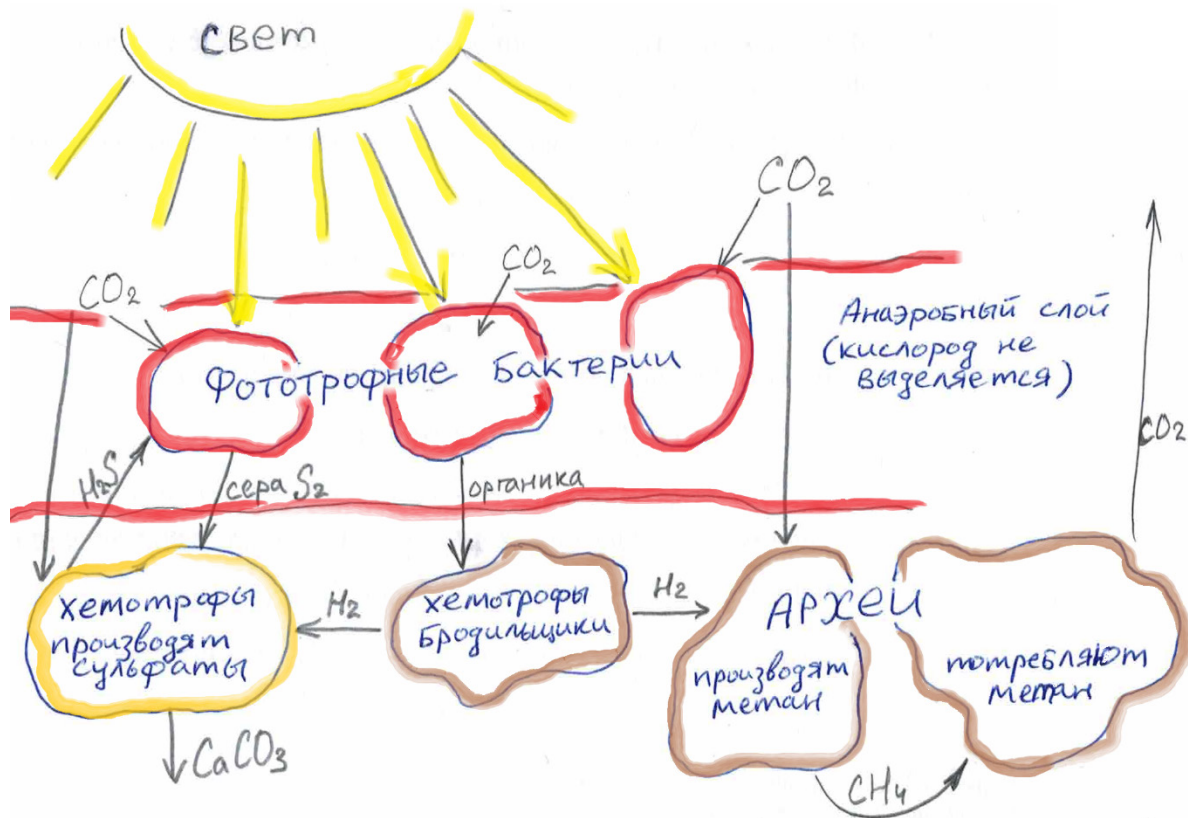 свет
CO₂
CO₂
CO₂
Анаэробный слой
(кислород не
выделяется)
Фототрофные Бактерии
CO₂
H₂S
сера S₂
органика
хемотрофы
производят
сульфаты
H₂
хемотрофы
Бродильщики
H₂
АРХЕИ
производят
метан
потребляют
метан
CaCO₃
CH₄